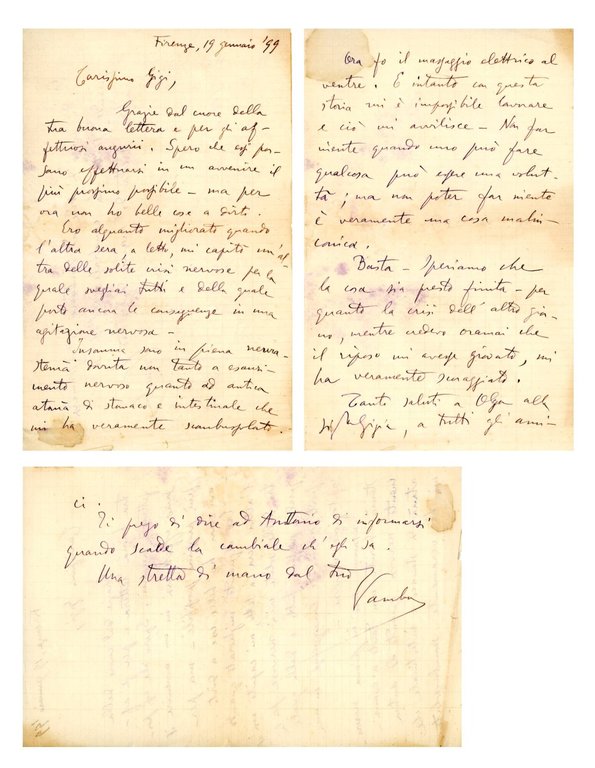 Firenze, 19 gennaio '99
Carissimo Gigi,
Grazie dal cuore della
tua buona lettera e per gli af-
fettuosi augurii. Spero che essi pos-
sano effettuarsi in un avvenire il
più prossimo possibile – ma per
ora non ho belle cose a dirti.
Ero alquanto migliorato quando
l'altra sera, a letto, mi capitò un'al-
tra delle solite crisi nervose per la
quale svegliai tutti e della quale
porto ancora le conseguenze in una
agitazione nervosa –
Insomma sono in piena nevra-
stenia dovuta non tanto a esauri-
mento nervoso quanto ad antica
atonia di stomaco e intestinale che
mi ha veramente scombussolato.
Ora fo il massaggio elettrico al
ventre. E intanto con questa
storia mi è impossibile lavorare
e ciò mi avvilisce – Non far
niente quando uno può fare
qualcosa può essere una volut-
tà; ma non poter far niente
è veramente una cosa malin-
conica.
Basta – Speriamo che
la cosa sia presto finita – per
quanto la crisi dell'altro gior-
no, mentre credevo oramai che
il riposo mi avesse giovato, mi
ha veramente scoraggiato.
Tanti saluti a Olga alla
Gigia, a tutti gli ami-
ci.
Ti prego di dire ad Antonio di informarsi
quando scade la cambiale ch'egli sa.
Una stretta di mano dal tuo
Vamba